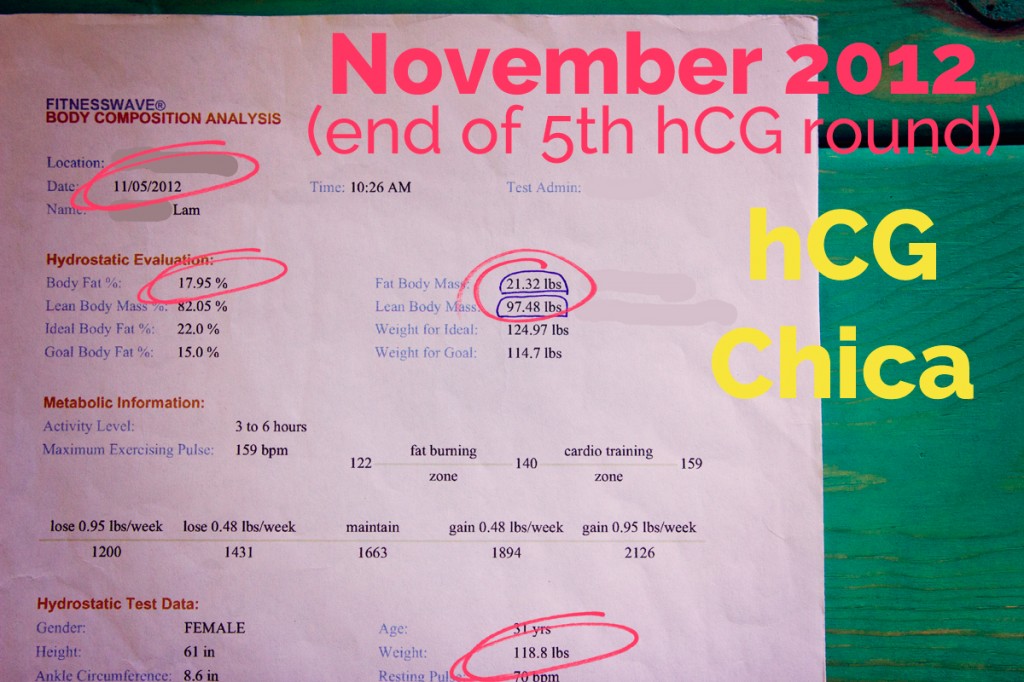 November 2012
(end of 5th hCG round)
hCG
Chica
FITNESSWAVE®
BODY COMPOSITION ANALYSIS
Location:
Date: 11/05/2012 Time: 10:26 AM Test Admin:
Name: Lam
Hydrostatic Evaluation:
Body Fat %: 17.95 % Fat Body Mass: 21.32 lbs
Lean Body Mass %: 82.05 % Lean Body Mass: 97.48 lbs
Ideal Body Fat %: 22.0 % Weight for Ideal: 124.97 lbs
Goal Body Fat %: 15.0 % Weight for Goal: 114.7 lbs
Metabolic Information:
Activity Level: 3 to 6 hours
Maximum Exercising Pulse: 159 bpm
122 fat burning zone 140 cardio training zone 159
lose 0.95 lbs/week lose 0.48 lbs/week maintain gain 0.48 lbs/week gain 0.95 lbs/week
1200 1431 1663 1894 2126
Hydrostatic Test Data:
Gender: FEMALE Age: 31 yrs
Height: 61 in Weight: 118.8 lbs
Ankle Circumference: 8.6 in Resting Pulse: 70 bpm